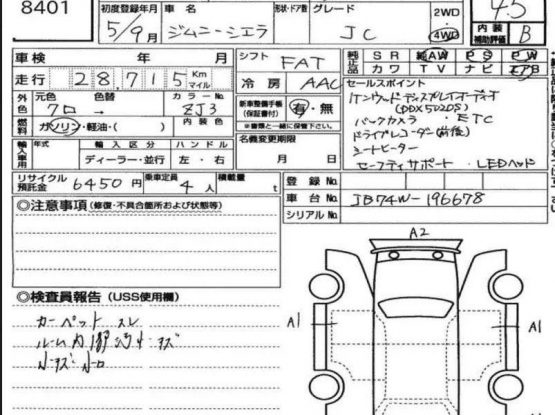 8401
初度登録年月 車名 形状・ドア数 グレード 2WD 4WD 4.5
5/9月 ジムニーシエラ JC 内装補助評価 B
車検 年 月 シフト FAT
純正品 SR 純AW PS PW
カワ TV ナビ エアB
走行 28,715 Km マイル 冷房 AAC
セールスポイント
外色 元色 色替 カラーNo.
クロ → ZJ3
新車整備手帳(保証書付) 有・無
※書類と一緒に保管下さい。
ケンウッドディスプレイオーディオ
(DDX5020S)
バックカメラ・ETC
ドライブレコーダー(前後)
シートヒーター
セーフティサポート・LEDヘッド
燃料 ガソリン・軽油・( ) 内装色
輸入車用 年式 輸入区分 ハンドル
ディーラー・並行 左・右
名義変更期限
月 日
リサイクル預託金 6450円 乗車定員 4人 積載量 t
登録No.
車台No. JB74W-196678
シリアルNo.
◎注意事項(修復・不具合箇所および状態等)
A2
◎検査員報告(USS使用欄)
カーペット スレ
ルーム内
A1
A1